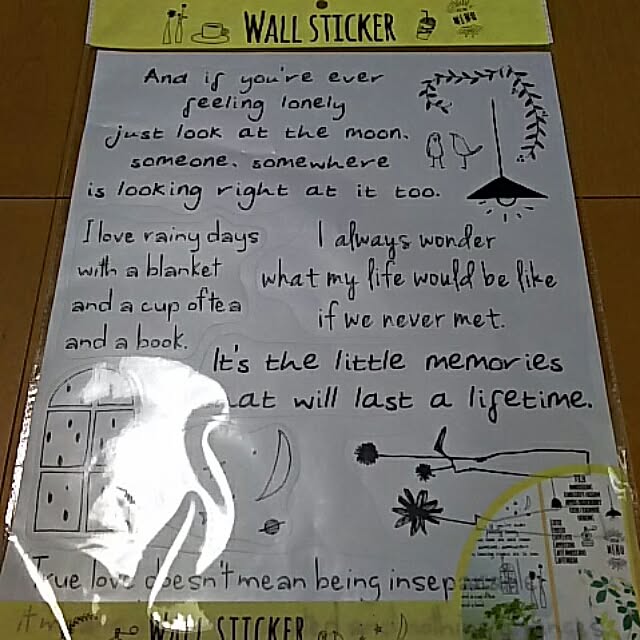 WALL STICKER
MENU
And if you're ever
feeling lonely
just look at the moon.
someone, somewhere
is looking right at it too.
I love rainy days
with a blanket
and a cup of tea
and a book.
I always wonder
what my life would be like
if we never met.
It's the little memories
at will last a lifetime.
True love doesn't mean being insep
MENU
it
WALL STICKER